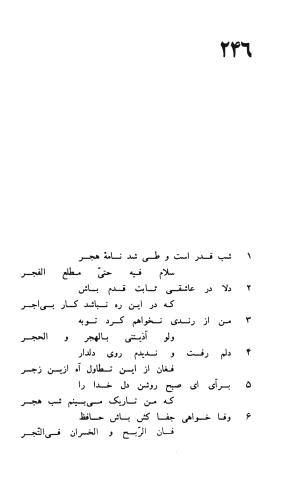 ۲۴۶
۱ شب قدر است و طی شد نامهٔ هجر
سلام فیه حتیّ مطلع الفجر
۲ دلا در عاشقی ثابت قدم باش
که در این ره نباشد کار بی‌اجر
۳ من از رندی نخواهم کرد توبه
ولو آذیتنی بالهجر و الحجر
۴ دلم رفت و ندیدم روی دلدار
فغان از این تطاول آه ازین زجر
۵ برآی ای صبح روشن دل خدا را
که من تاریک می‌بینم شب هجر
۶ وفا خواهی جفا کش باش حافظ
فان الرّبح و الخسران فی‌التّجر